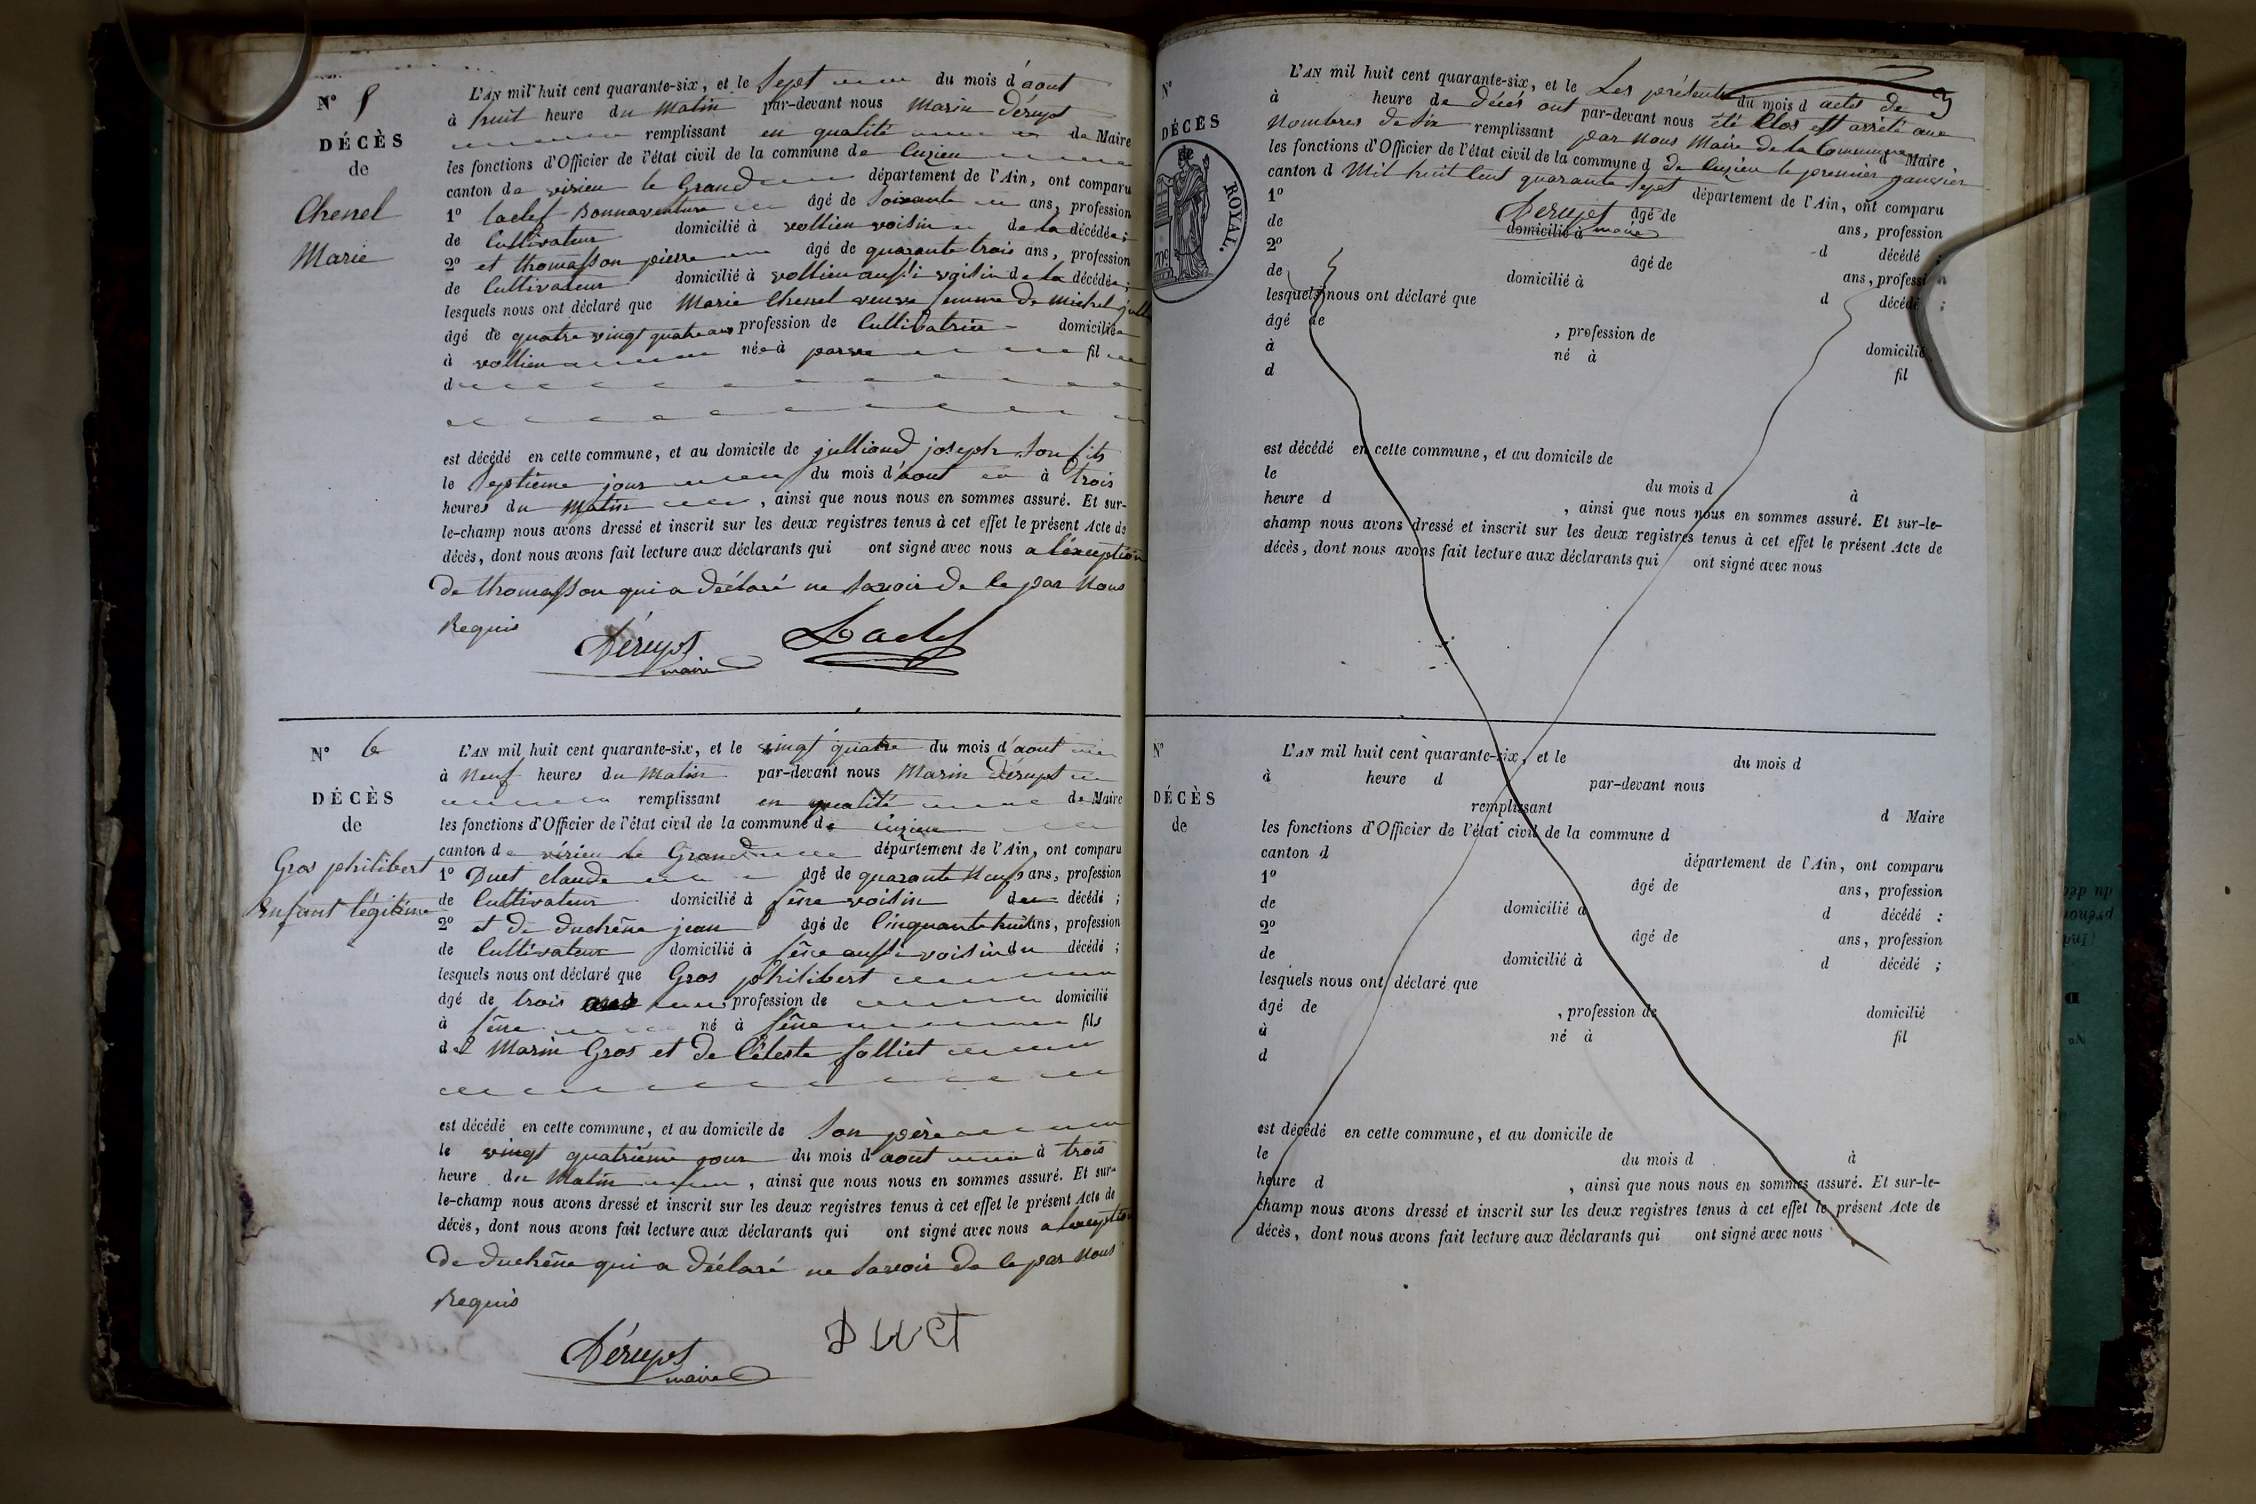 N° 5
DÉCÈS
de
Chenel
Marie
L'AN mil huit cent quarante-six, et le Sept du mois d'aout
à huit heure du Matin par-devant nous Marin Dérupt
remplissant en qualité de Maire
les fonctions d'Officier de l'état civil de la commune de Cuzieu
canton de virieu le Grand département de l'Ain, ont comparu
1° Laclef Bonnaventure âgé de Soixante ans, profession
de Cultivateur domicilié à vollien voisin de la décédée;
2° et thomasson pierre âgé de quarante trois ans, profession
de Cultivateur domicilié à vollien aussi voisin de la décédée;
lesquels nous ont déclaré que Marie Chenel veuve femme de Michel
âgé de quatre vingt quatre ans profession de Cultivatrice domiciliée
à vollien née à parve fil
d
est décédé en cette commune, et au domicile de julliand joseph Son fils
le Septième jour du mois d'aout à trois
heures du Matin, ainsi que nous nous en sommes assuré. Et sur-
le-champ nous avons dressé et inscrit sur les deux registres tenus à cet effet le présent Acte de
décès, dont nous avons fait lecture aux déclarants qui ont signé avec nous a l'exception
de thomasson qui a déclaré ne Savoir de ce par Nous
Requis
Dérupt Laclef
maire
N° 6
DÉCÈS
de
Gros philibert
Enfant légitime
L'AN mil huit cent quarante-six, et le vingt quatre du mois d'aout
à Neuf heures du Matin par-devant nous Marin Dérupt
remplissant en qualité de Maire
les fonctions d'Officier de l'état civil de la commune de Cuzieu
canton de virieu le Grand département de l'Ain, ont comparu
1° Duet claude âgé de quarante Neuf ans, profession
de Cultivateur domicilié à Sêne voisin du décédé;
2° et de duchêne jean âgé de Cinquante huit ans, profession
de Cultivateur domicilié à Sêne aussi voisin du décédé;
lesquels nous ont déclaré que Gros philibert
âgé de trois ans profession de domicilié
à Sêne né à Sêne fils
de Marin Gros et de Céleste folliet
est décédé en cette commune, et au domicile de Son père
le vingt quatrième jour du mois d'aout à trois
heure du Matin, ainsi que nous nous en sommes assuré. Et sur-
le-champ nous avons dressé et inscrit sur les deux registres tenus à cet effet le présent Acte de
décès, dont nous avons fait lecture aux déclarants qui ont signé avec nous a l'exception
de duchêne qui a déclaré ne Savoir de ce par Nous
Requis
Dérupt DUET
maire
N°
DÉCÈS
ROYAL.
L'AN mil huit cent quarante-six, et le Les présents du mois d actes de
à heure d e Décès ont par-devant nous été Clos et arrêté au
Nombres de Six remplissant par Nous Maire de la Commune d Maire
les fonctions d'Officier de l'état civil de la commune d de Cuzieu le premier janvier
canton d Mil huit Cent quarante Sept département de l'Ain, ont comparu
1° Dérupt âgé de ans, profession
de domicilié à maire d décédé;
2° âgé de ans, profession
de domicilié à d décédé;
lesquels nous ont déclaré que
âgé de, profession de domicilié
à né à fil
d
est décédé en cette commune, et au domicile de
le du mois d à
heure d, ainsi que nous nous en sommes assuré. Et sur-le-
champ nous avons dressé et inscrit sur les deux registres tenus à cet effet le présent Acte de
décès, dont nous avons fait lecture aux déclarants qui ont signé avec nous
N°
DÉCÈS
de
L'AN mil huit cent quarante-six, et le du mois d
à heure d par-devant nous
remplissant d Maire
les fonctions d'Officier de l'état civil de la commune d
canton d département de l'Ain, ont comparu
1° âgé de ans, profession
de domicilié à d décédé;
2° âgé de ans, profession
de domicilié à d décédé;
lesquels nous ont déclaré que
âgé de, profession de domicilié
à né à fil
d
est décédé en cette commune, et au domicile de
le du mois d à
heure d, ainsi que nous nous en sommes assuré. Et sur-le-
champ nous avons dressé et inscrit sur les deux registres tenus à cet effet le présent Acte de
décès, dont nous avons fait lecture aux déclarants qui ont signé avec nous